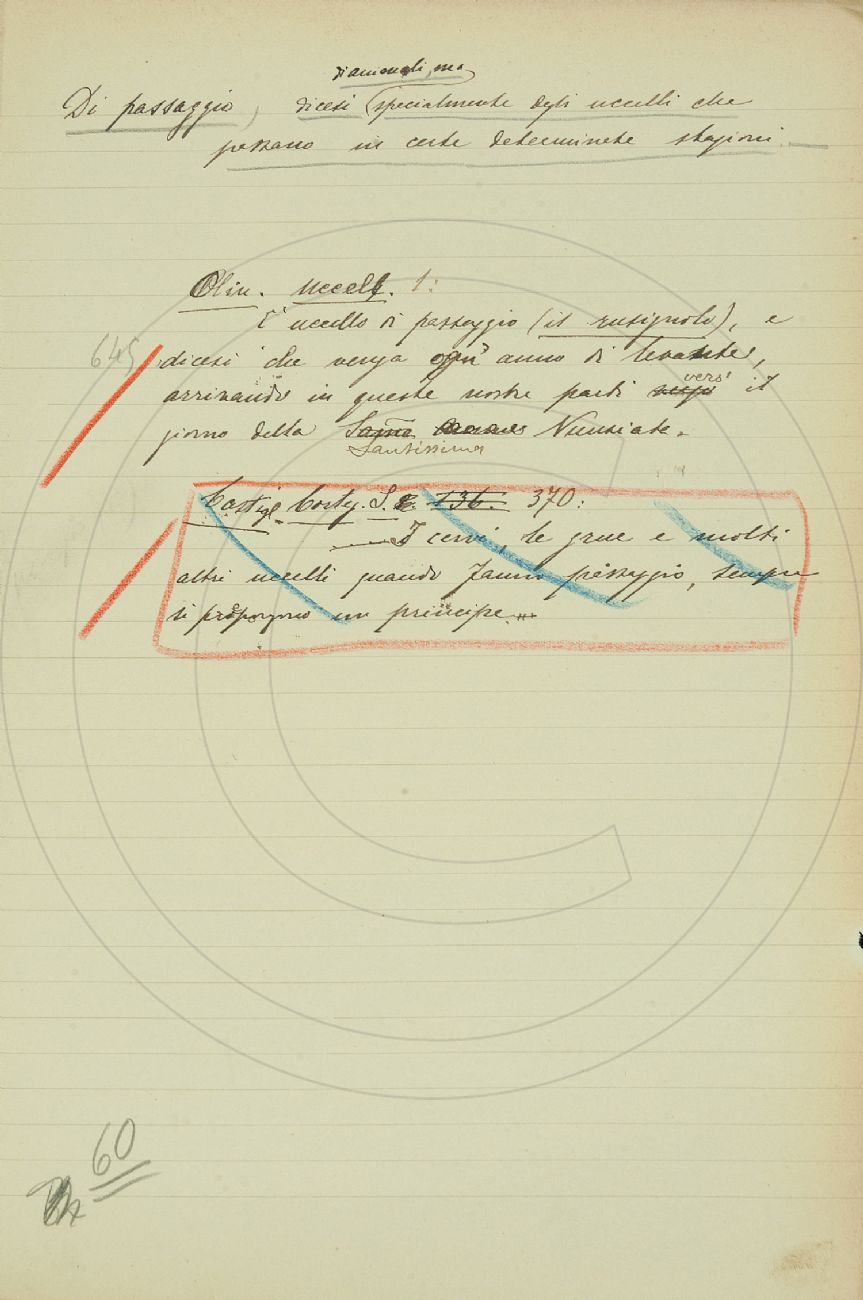 di animali, ma
Di passaggio, dicesi specialmente degli uccelli che
passano in certe determinate stagioni.
Olin. Uccell. 1:
È uccello di passaggio (il rusignolo), e
645
dicesi che venga ogni anno di levante,
arrivando in queste nostre parti verso il
giorno della Santissima Nunziata.
Castigl. Corteg. 136. 370:
I cervi, le grue e molti
altri uccelli quando fanno passaggio, sempre
si prepongono un principe...
60